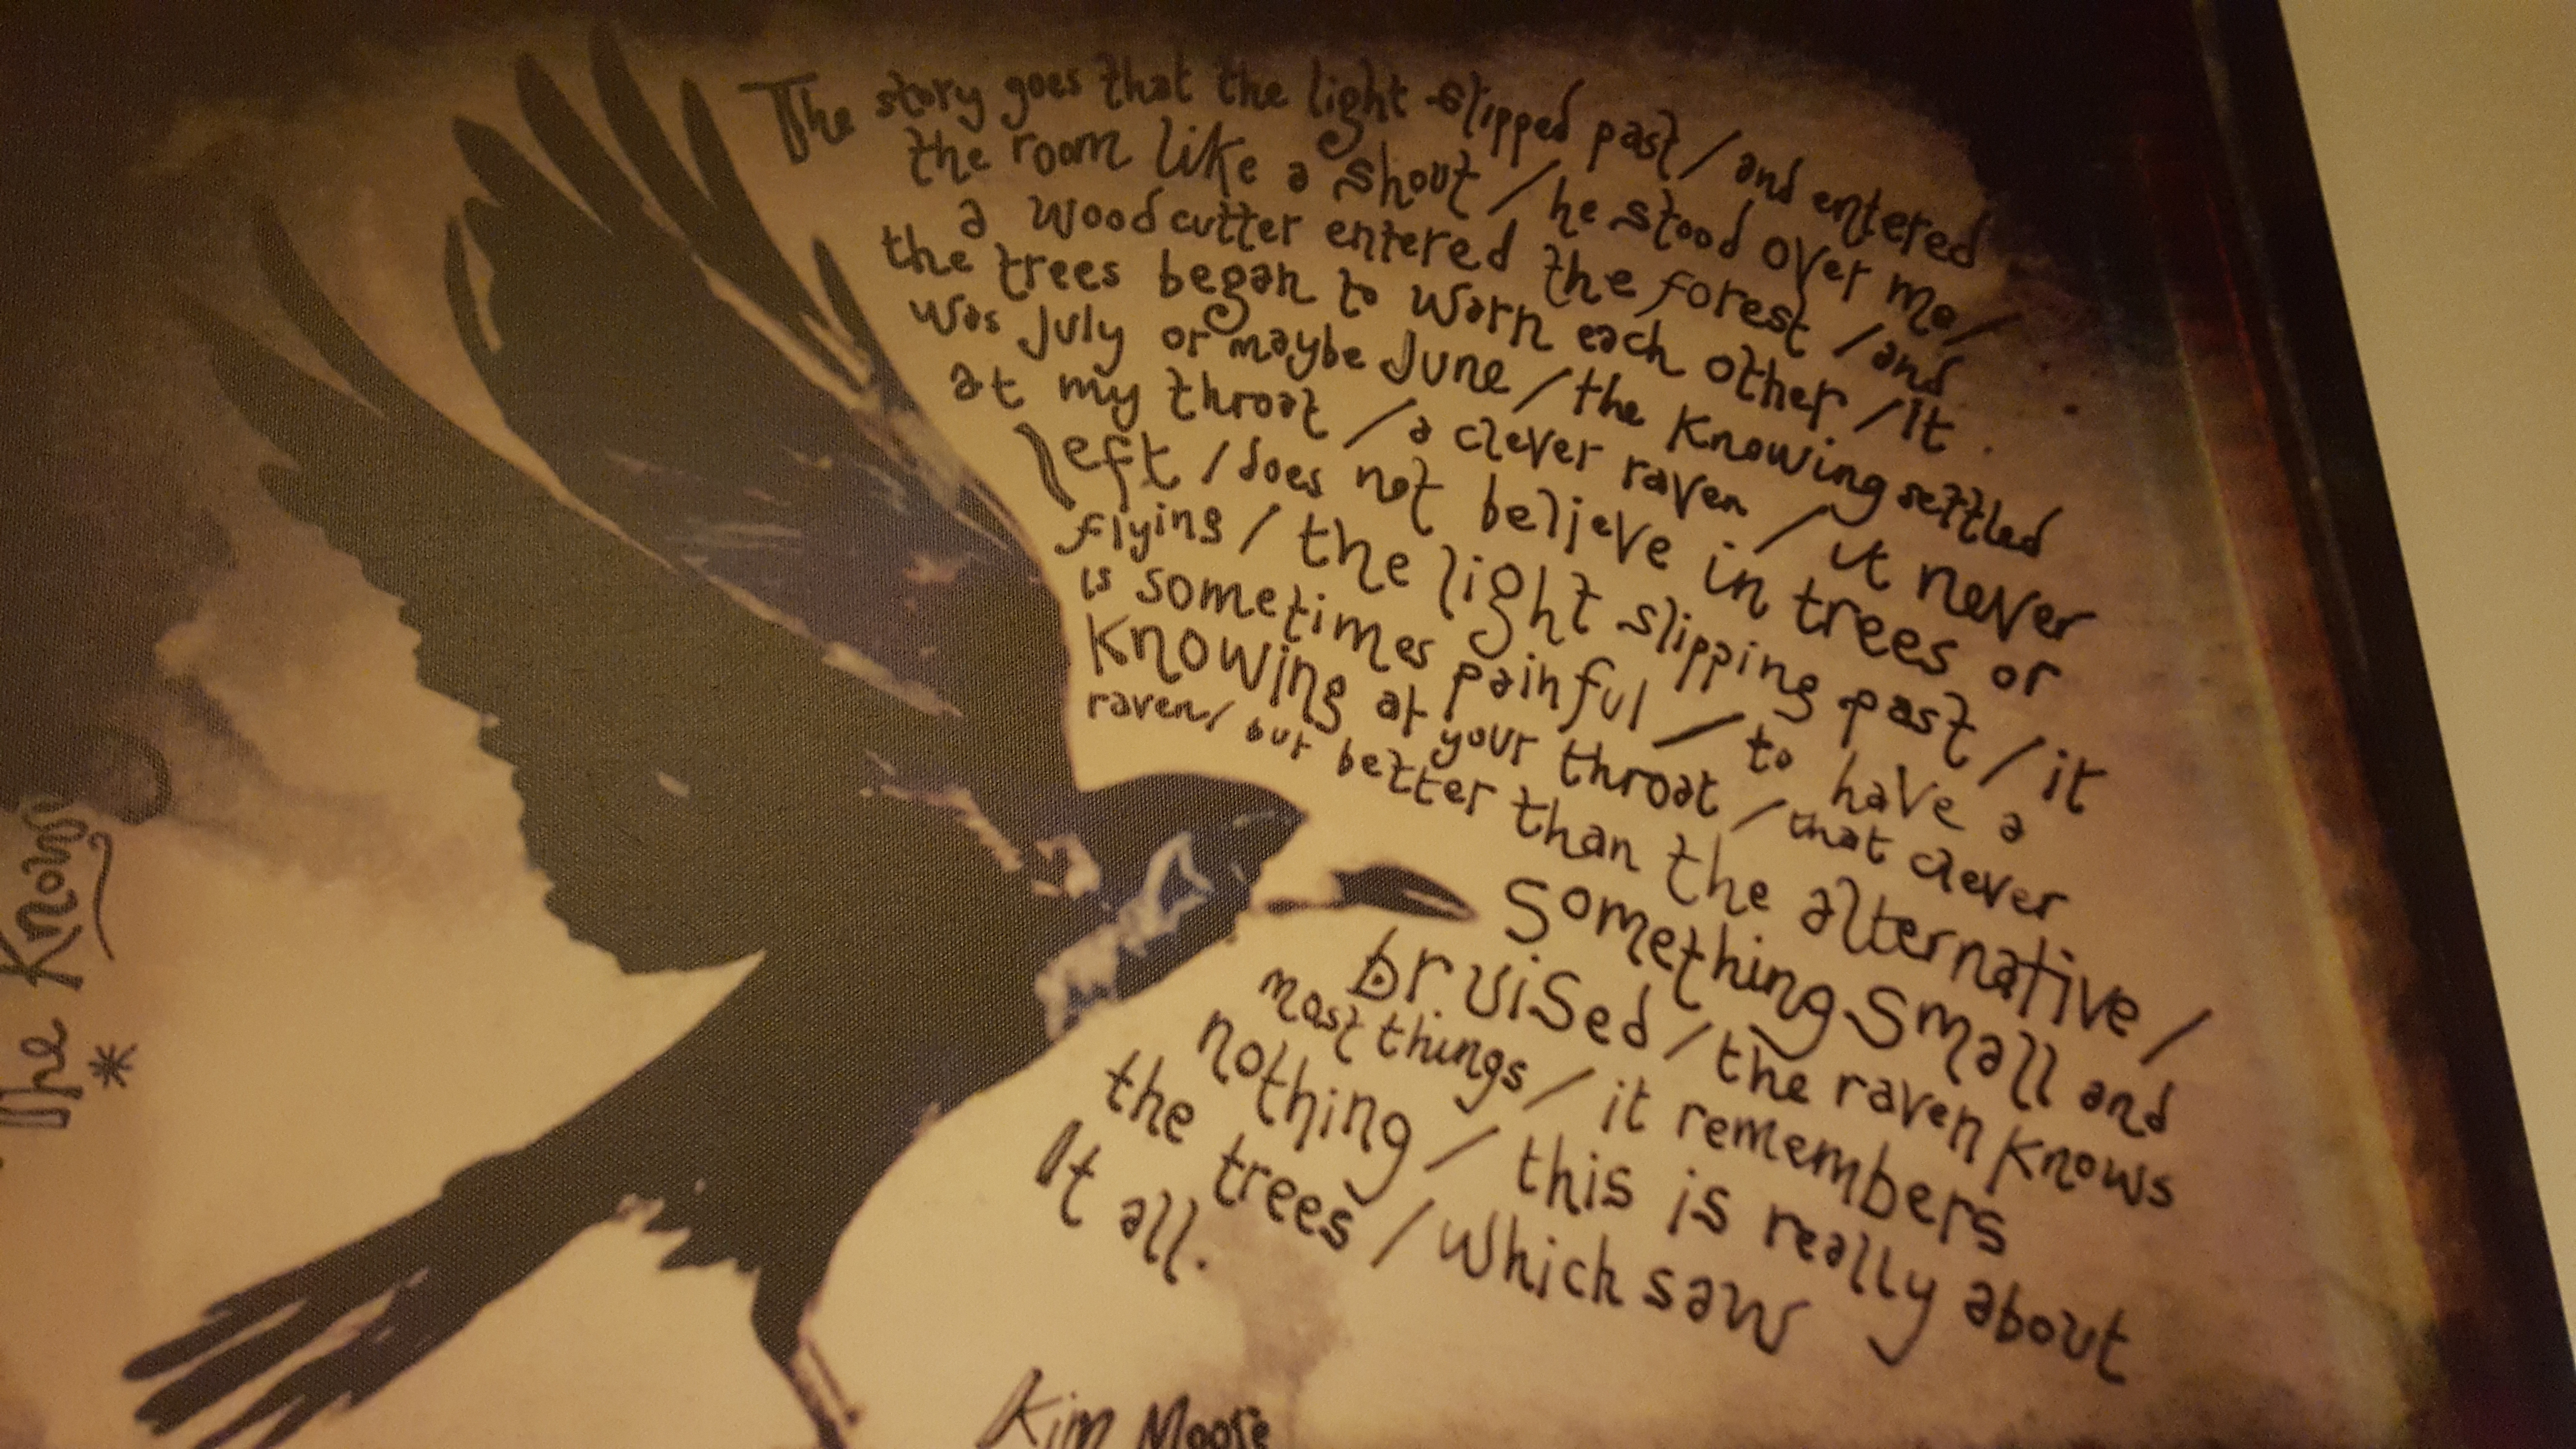 The story goes that the light slipped past / and entered
the room like a shout / he stood over me /
a woodcutter entered the forest / and
the trees began to warn each other / It
was July or maybe June / the knowing settled
at my throat / a clever raven / it never
left / does not believe in trees or
flying / the light slipping past / it
is sometimes painful / to have a
knowing at your throat / that clever
raven / but better than the alternative /
something small and
bruised / the raven knows
most things / it remembers
nothing / this is really about
the trees / which saw
It all.
Kim Moore
The Knowing
*